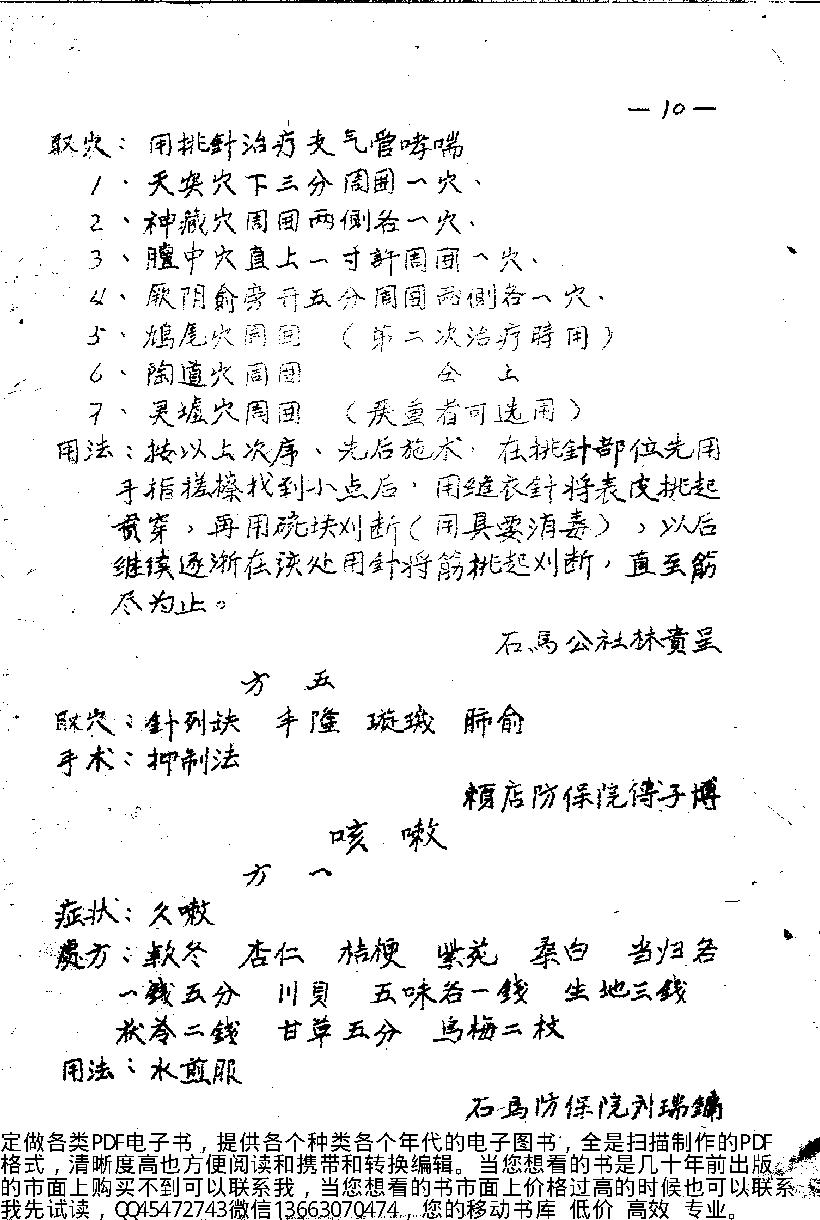 — 10 —
取穴：用挑針治疗支气管哮喘
1、天突穴下三分周囲一穴、
2、神藏穴周囲两側各一穴、
3、膻中穴直上一寸許周囲一穴、
4、厥阴俞旁开五分周囲两側各一穴、
5、鳩尾穴周囲（第二次治疗時用）
6、陶道穴周囲 仝 上
7、灵墟穴周囲（严重者可选用）
用法：按以上次序、先后施术，在挑針部位先用
手指搓擦找到小点后，用缝衣針将表皮挑起
贯穿，再用碗块刈断（用具要消毒），以后
继续逐渐在该处用針将筋挑起刈断，直至筋
尽为止。
石馬公社林貴呈
方 五
取穴：針列缺 丰隆 璇璣 肺俞
手术：抑制法
賴店防保院傅子博
咳 嗽
方 一
症狀：久嗽
處方：款冬 杏仁 桔梗 紫苑 桑白 当归各
一錢五分 川貝 五味各一錢 生地三錢
茯苓二錢 甘草五分 烏梅二枝
用法：水煎服
石馬防保院刘瑞鏞
定做各类PDF电子书，提供各个种类各个年代的电子图书，全是扫描制作的PDF
格式，清晰度高也方便阅读和携带和转换编辑。当您想看的书是几十年前出版
的市面上购买不到可以联系我，当您想看的书市面上价格过高的时候也可以联系
我先试读，QQ45472743微信13663070474，您的移动书库 低价 高效 专业。